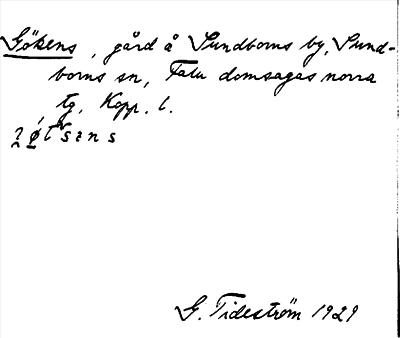 Gökens, gård å Sundborns by, Sund-
borns sn, Falu domsagas norra
tg, Kopp. l.
G. Tideström 1929